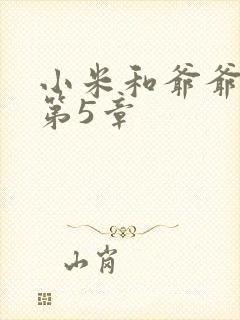 小米和爷爷
第5章
山肖